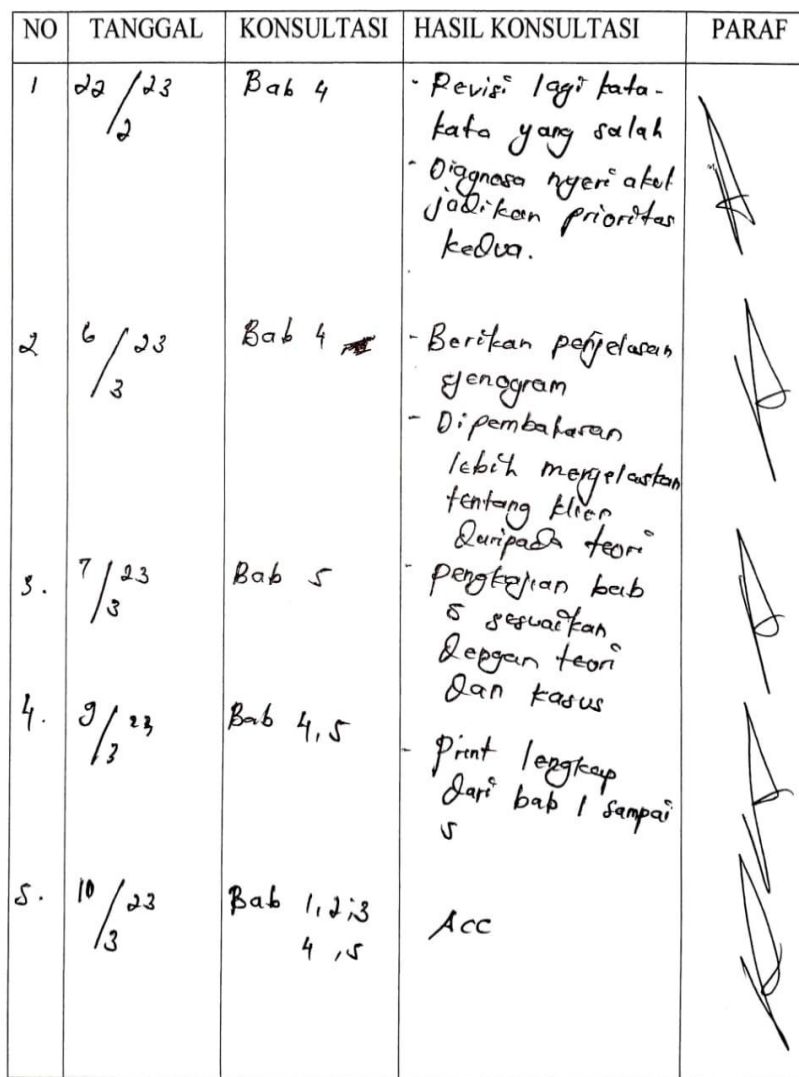 NO TANGGAL KONSULTASI HASIL KONSULTASI PARAF
1 22/2 23 Bab 4 - Revisi lagi kata-
kata yang salah
- Diagnosa nyeri akut
jadikan prioritas
kedua.
2 6/3 23 Bab 4 - Berikan penjelasan
genogram
- Dipembahasan
lebih menjelaskan
tentang klien
daripada teori
3. 7/3 23 Bab 5 - pengkajian bab
5 sesuaikan
dengan teori
dan kasus
4. 9/3 23 Bab 4,5 - Print lengkap
dari bab 1 sampai
5
5. 10/3 23 Bab 1,2,3 Acc
4,5